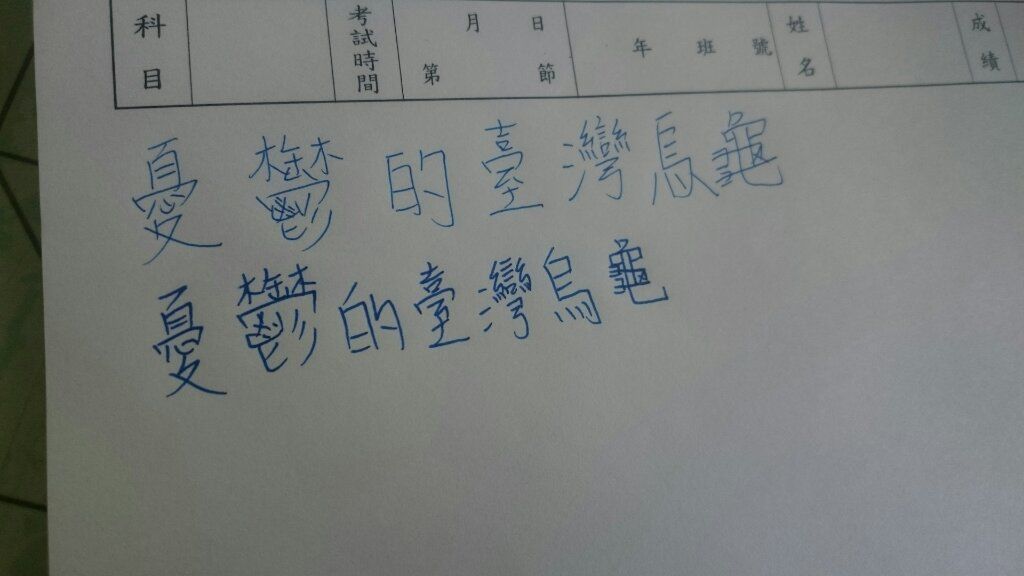 科目 考試時間 月 日 第 節 年 班 號 姓名 成績
憂鬱的臺灣烏龜
憂鬱的臺灣烏龜